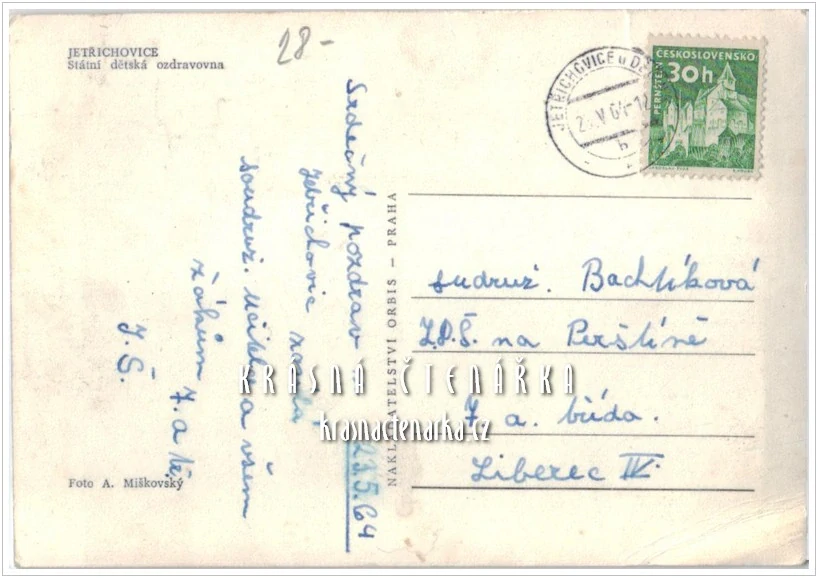 JETŘICHOVICE
Státní dětská ozdravovna
28-
JETŘICHOVICE u D
V 64-1
b
ČESKOSLOVENSKO
30h
PERNŠTEJN
Srdečný pozdrav z
Jetřichovic
soudruž. učitelce a všem
žákům 7. a tř.
J. Š.
23.5.64
NAKLADATELSTVÍ ORBIS – PRAHA
sudruž. Bachtíková
Z.D.Š. na Perštíně
7 a. třída.
Liberec IV.
KRÁSNÁ ČTENÁŘKA
krasnactenarka.cz
Foto A. Miškovský